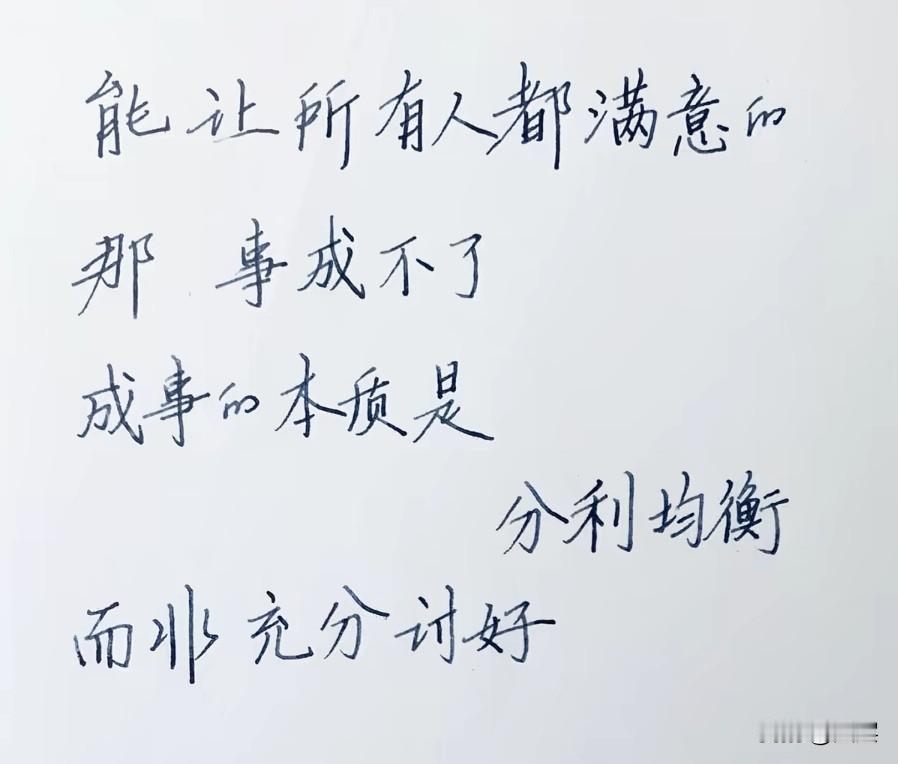 能让所有人都满意的
那 事成不了
成事的本质是
分利均衡
而非充分讨好